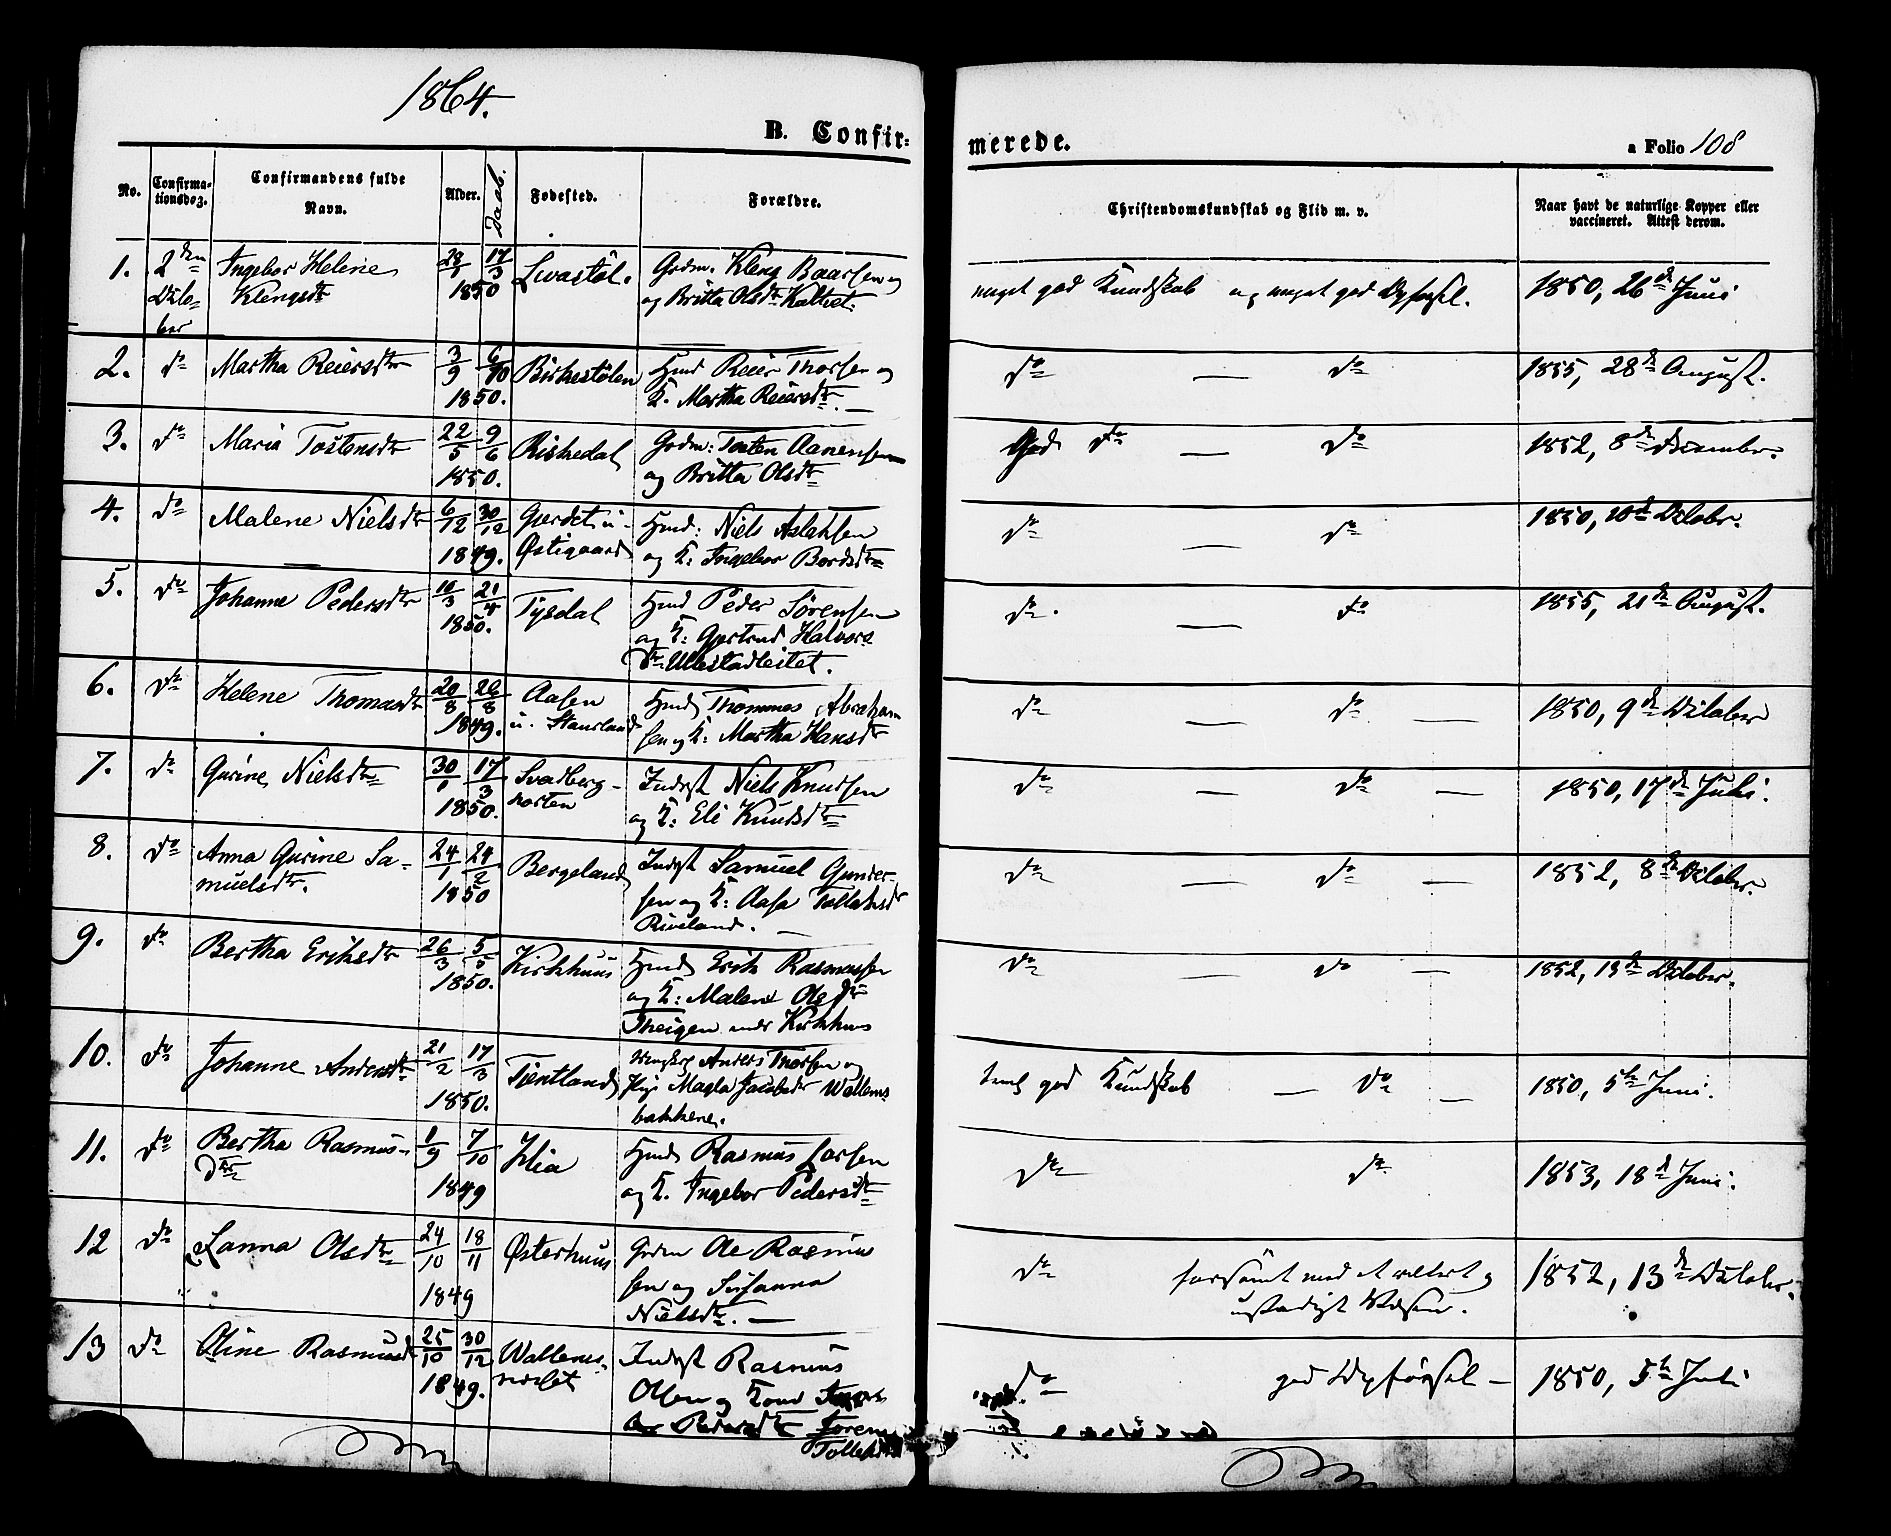 1864.
B. Confirmerede.
a Folio 108
No. Confirmationsdag. Confirmandens fulde Navn. Alder. Daab. Fødested. Forældre. Christendomskundskab og Flid m. v. Naar havt de naturlige Kopper eller vaccineret. Attest derom.
1. 2den Octobber Ingebor Helene Klengsdtr 28/1 17/3 1850 Lvastøl. Grdm. Kleng Baarsen og og Britta Olsdtr Kaltvet meget god Kundskab og meget god Opførsel. 1850, 26de Juni
2. do Martha Reiersdtr 3/9 6/10 1850. Birkestølen Hmd Reier Thorsen og K. Martha Reiersdtr. — do — do 1855, 28de August.
3. do Maria Tostensdtr 22/5 9/6 1850. Riskedal Grdm: Tosten Aanensen og Britta Olsdtr God do — do 1852, 8de December.
4. do Malene Nielsdtr 6/12 30/12 1849. Gjerdet u. Østigaard Hmd: Niels Aslaksen og K: Ingebor Bordsdtr do — do 1850, 10de Octobr.
5. do Johanne Pedersdtr 10/3 21/4 1850. Tysdal Hmd Peder Sörensen og K: Gjertrud Halvors dtr Ulestadleitet. do. — do 1855, 21de August.
6. do Helene Thomasdtr 20/8 26/8 1849. Aasen u. Staurland Hmd Thommas Abraham sen og K: Martha Hansdtr do — do — 1850, 9de October
7. do Gurine Nielsdtr 30/1 17/3 1850. Svadberg- Inderst Niels Knudsen og K: Eli Knudsdtr do — do — 1850, 17de Juli.
8. do Anna Gurine Samuelsdtr. 24/1 24/2 1850 Bergeland Inderst Samuel Gundersen og K: Aasa Tollaksdtr Riveland. — do — do — 1852, 8de Octobr.
9. do Bertha Eriksdtr 26/3 5/5 1850. Kirkhuus Hmd Erik Rasmussen og K: Malene Olsdtr Theigen under Kirkhus do — do — 1852, 13de Octobr.
10. do Johanne Andersdtr 21/2 17/3 1850. Tjentland Anders Thorsen og Pige Magla Jacobsdtr Wallems bakkene. god Kundskab — do — 1850, 5te Juni.
11. do Bertha Rasmusdtr 1/9 7/10 1849 Hia Hmd Rasmus Larsen og K. Ingebor Pedersdtr do do 1853, 18de Juni.
12 do Lanna Olsdtr 24/10 18/11 1849 Østerhuus Grdm Ole Rasmus sen og Susanna Nielsdtr. — do forsömt med et og ustadigt Væsen. 1852, 13de Octobr.
13 do Oline Rasmusdtr 25/10 30/12 1849. Wallems- Inderst Rasmus Olsen og Kone Reiersdtr Joren Tolleks do god Opförsel — 1850, 5te Juli